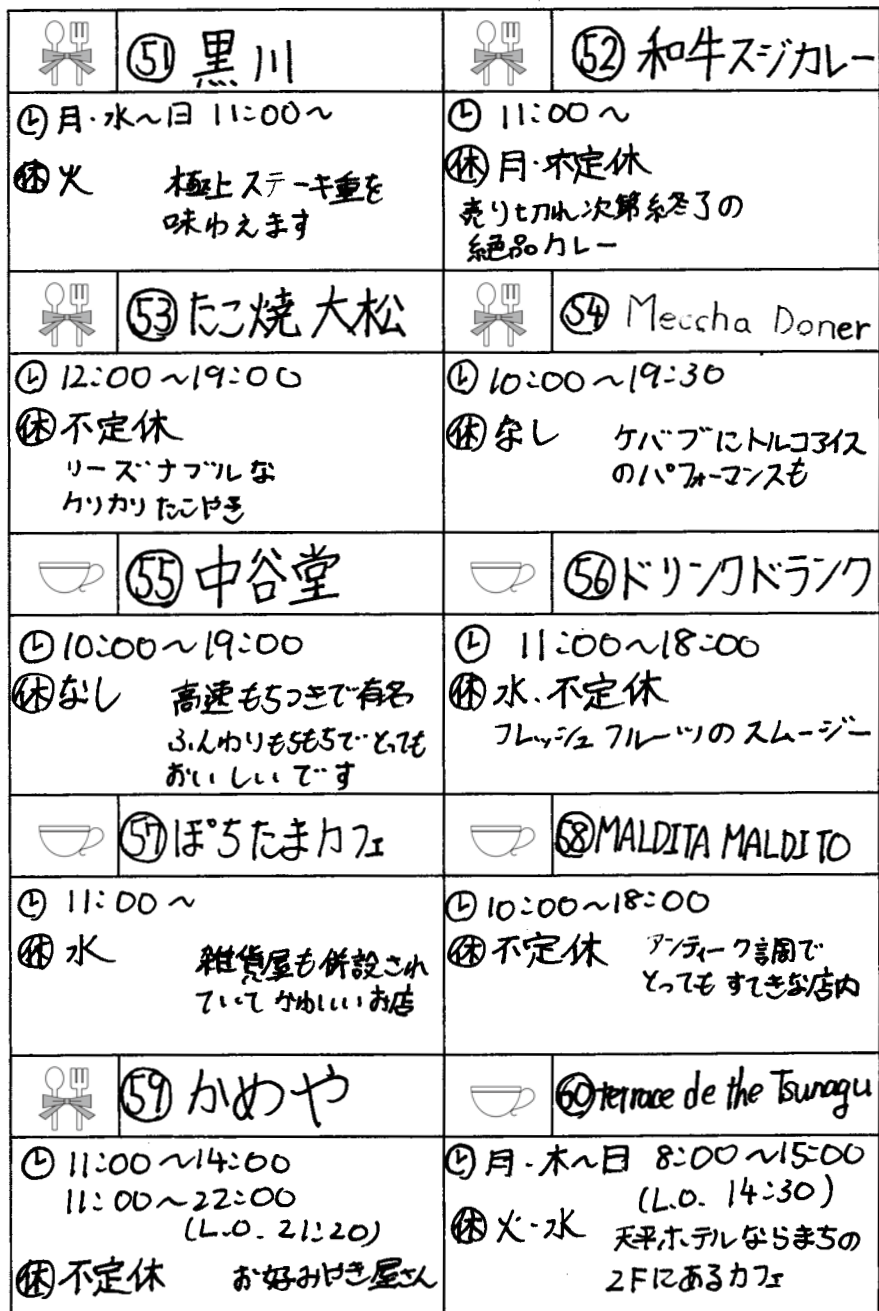 51 黒川
月・水〜日 11:00〜
休 火
極上ステーキ重を
味わえます
52 和牛スジカレー
11:00〜
休 月・不定休
売り切れ次第終了の
絶品カレー
53 たこ焼 大松
12:00〜19:00
休 不定休
リーズナブルな
カリカリたこやき
54 Meccha Doner
10:00〜19:30
休 なし
ケバブにトルコアイス
のパフォーマンスも
55 中谷堂
10:00〜19:00
休 なし
高速もちつきで有名
ふんわりもちもちでとっても
おいしいです
56 ドリンクドランク
11:00〜18:00
休 水、不定休
フレッシュフルーツのスムージー
57 ぽちたまカフェ
11:00〜
休 水
雑貨屋も併設され
ていてかわいいお店
58 MALDITA MALDITO
10:00〜18:00
休 不定休
アンティーク調で
とってもすてきな店内
59 かめや
11:00〜14:00
11:00〜22:00
(L.O. 21:20)
休 不定休
お好みやき屋さん
60 terrace de the Tsunagu
月・木〜日 8:00〜15:00
(L.O. 14:30)
休 火・水
天平ホテルならまちの
2Fにあるカフェ